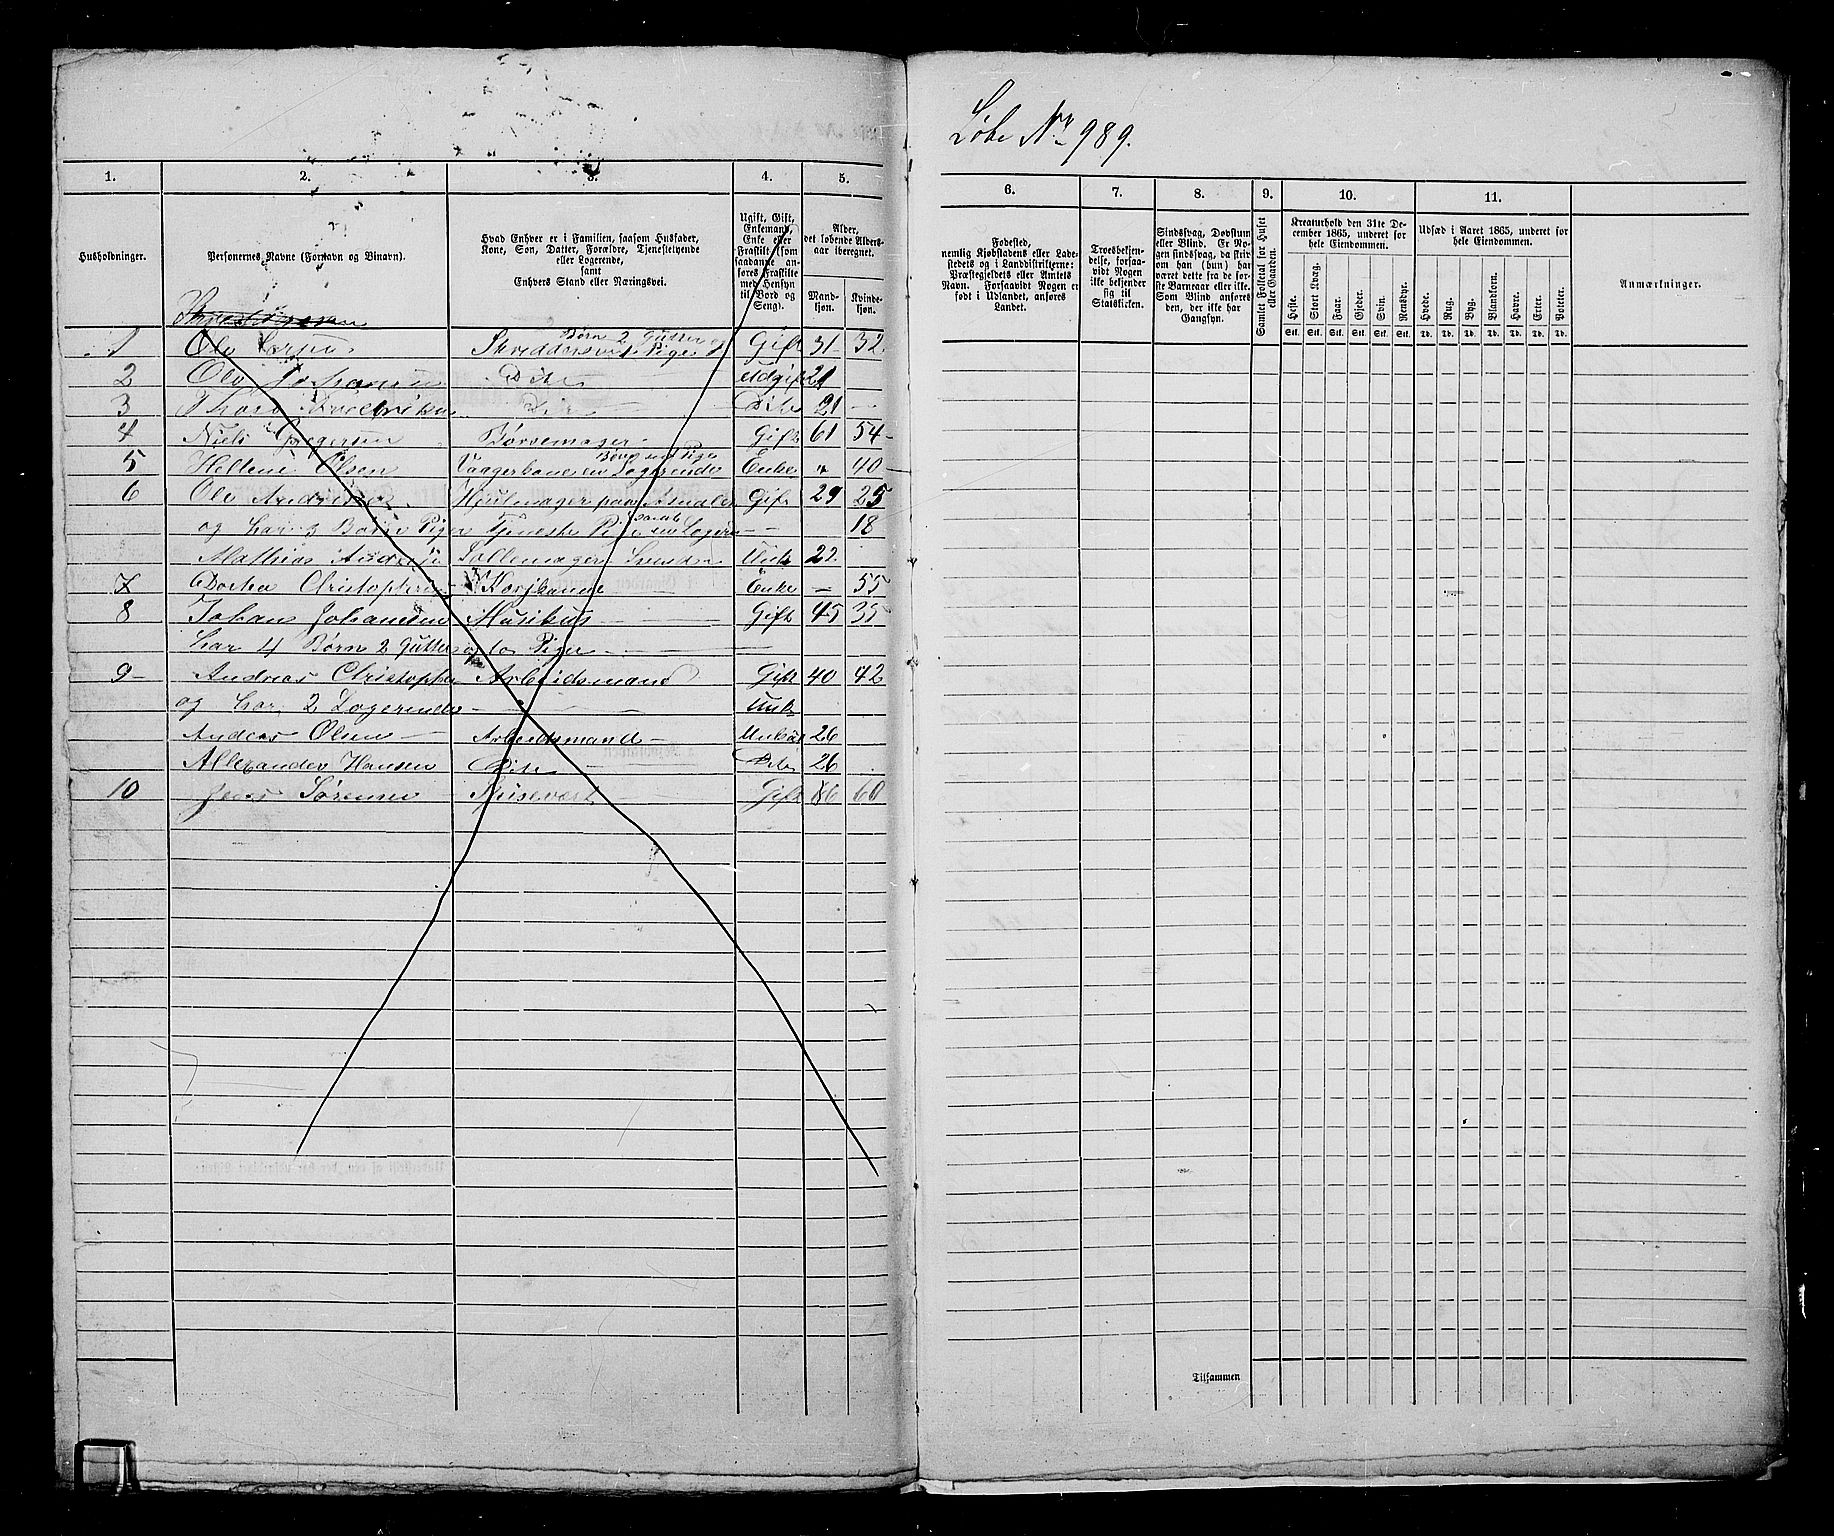 Løbe Nr 989.
1. 2. 3. 4. 5.
Husholdninger.
Personernes Navne (Fornavn og Binavn).
Hvad Enhver er i Familien, saasom Husfader,
Kone, Søn, Datter, Forældre, Tjenestetyende
eller Logerende,
samt
Enhvers Stand eller Næringsvei.
Ugift, Gift,
Enkemand,
Enke eller
Fraskilt (som
saadanne anføres
Fraskilte
med Hensyn
til Bord og
Seng).
Alder,
det løbende Alders-
aar iberegnet.
Mand-
kjøn.
Kvinde-
kjøn.
Børn 2 Gutter og
1 Ole Larsen Skreddersvend Pige Gift 31 32
2 Ole Johansen Dito Udgift 21
3 Thorv Dito Dito 21
4 Niels Gregersen Børvemager Gift 61 54
5 Hellene Olsen Vaagerkone en Logerende Enke " 40
6 Ole Andersen Hjulmager paa Gift 29 25
og har 3 Børn Piger Tjeneste Pige samt en Logere 18
Mathias Svend 22
7 Dortea Christophersen Enke 55
8 Johan Johannesen Musikus Gift 45 35
har 4 Børn 2 Gutter og to Piger
9 Andreas Christophe Arbeidsmand Gift 40 42
og har 2 Logerende
Anders Olsen Arbeidsmand 26
Allexander Hansen Dito Dito 26
10 Jens Sørensen Spisevært Gift 66 60
6. 7. 8. 9. 10. 11.
Fødested,
nemlig Kjøbstadens eller Lade-
stedets og i Landdistrikterne:
Præstegjeldets eller Annexets
Navn. Forsaavidt Nogen er
født i Udlandet, anføres
Landet.
Troesbekjen-
delse, forsaa-
vidt Nogen
ikke bekjender
sig til
Statskirken.
Sindssvag, Døvstum
eller Blind. Er No-
gen sindssvag, da skriv
om han (hun) har
været dette fra de før-
ste Barneaar eller ikke.
Som Blind anføres
den, der ikke har
Gangsyn.
Samlet Folketal for Huset
eller Gaarden.
Kreaturhold den 31te De-
cember 1865, underet for
hele Eiendommen.
Heste. Stort Kvæg. Faar. Gjeder. Svin. Rensdyr.
Stk. Stk. Stk. Stk. Stk. Stk.
Udsæd i Aaret 1865, underet for
hele Eiendommen.
Hvede. Rug. Byg. Blandkorn. Havre. Erter. Poteter.
Td. Td. Td. Td. Td. Td. Td.
Anmærkninger.
Tilsammen